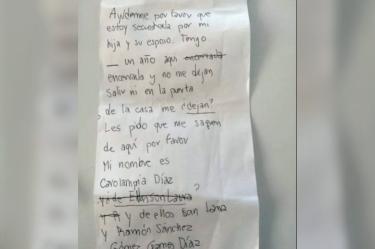 Ayúdenme por favor que
estoy secuestrada por mi
hija y su esposo. Tengo
_ un año aquí encerrada
encerrada y no me dejan
salir ni en la puerta
de la casa me ¿dejan?
Les pido que me saquen
de aquí por favor
Mi nombre es
Carolangia Díaz
?
y de ellos son Lana
y Ramón Sánchez
Gómez Díaz